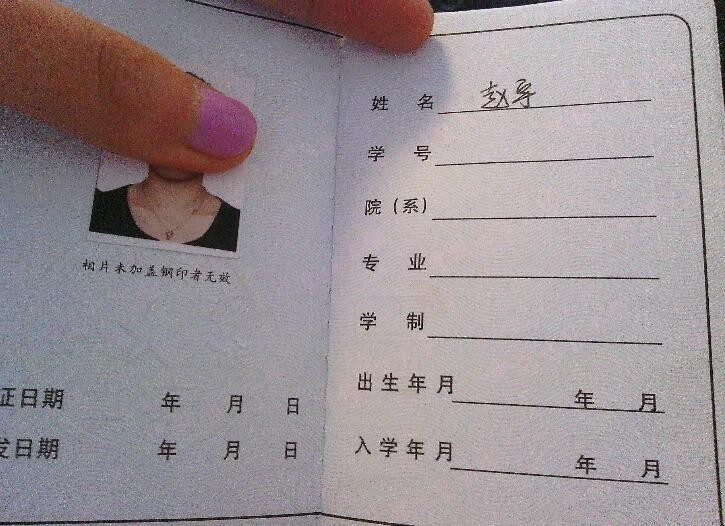 相片未加盖钢印者无效
证日期 年 月 日
发日期 年 月 日
姓 名 赵导
学 号
院(系)
专 业
学 制
出生年月 年 月
入学年月 年 月